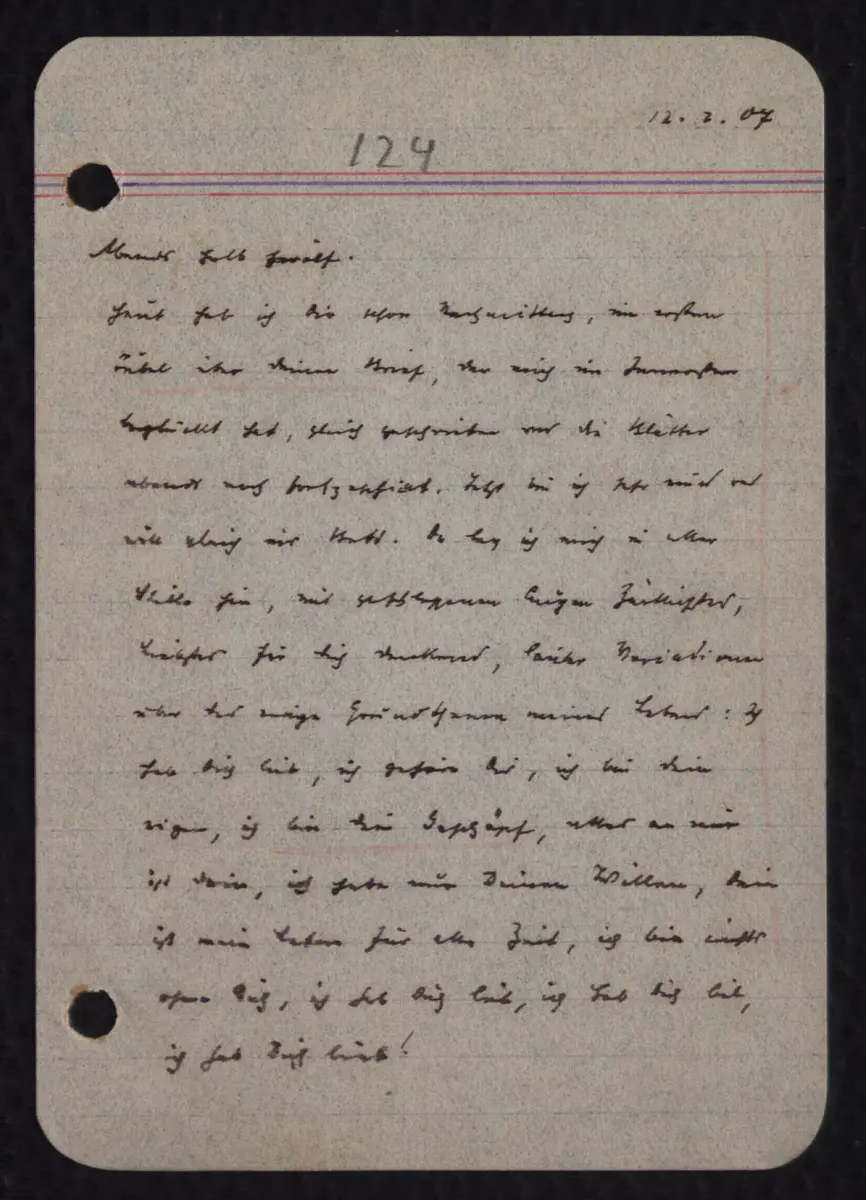 12. 2. 07
124
Abends halb zwölf.
Heut hab ich Dir schon Nachmittags, im ersten
Jubel über Deinen Brief, der mich im Innersten
beglückt hat, gleich geschrieben und die Blätter
abends noch fortgeschickt. Jetzt bin ich sehr müd und
will gleich ins Bett. Da leg ich mich in aller
Stille hin, mit geschlossenen Augen Zärtlichstes,
Liebstes für Dich denkend, lauter Variationen
über das ewige Grundthema meines Lebens: Ich
hab Dich lieb, ich gehöre Dir, ich bin Dein
eigen, ich bin Dein Geschöpf, alles an mir
ist Dein, ich habe nur Deinen Willen, Dein
ist mein Leben für alle Zeit, ich bin nichts
ohne Dich, ich hab Dich lieb, ich hab Dich lieb,
ich hab Dich lieb!